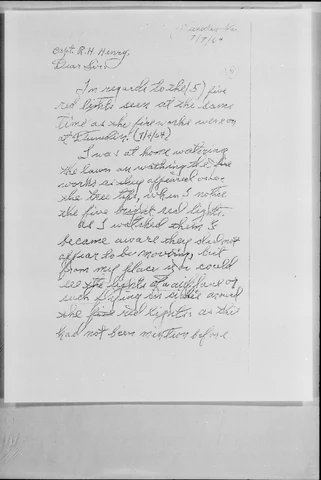 7/9/64
Capt. R. H. Henry,
Dear Sir:
In regards to the (5) five
red lights seen at the same
time as the fireworks were on
at Dunedin. (7/4/64)
I was at home watering
the lawn an wathing the fire
works as they appeared over
the tree tops, when I notice
the five bright red lights.
As I watched them I
became aware they did not
appear to be moveing, but
from my place I could
see the lights of a airplane or
such flying in circle around
the five red lights. as this
had not been mention before